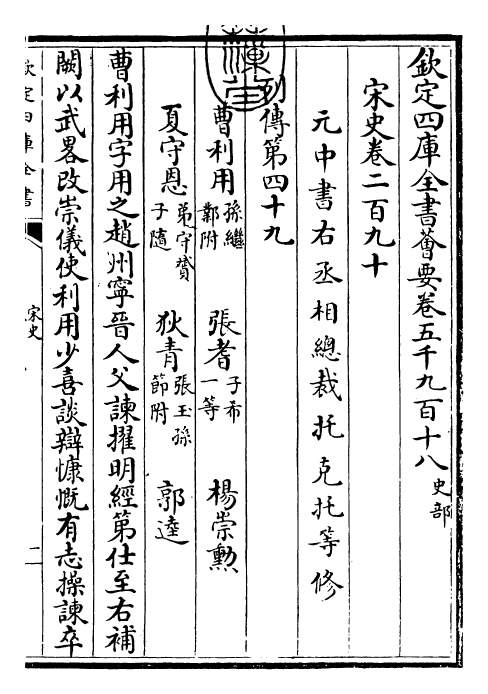 欽定四庫全書薈要卷五千九百十八 史部
宋史卷二百九十
元中書右丞相總裁托克托等修
列傳第四十九
曹利用 孫繼鄴附 張耆 子希一等 楊崇勲
夏守恩 弟守贇 子隨 狄青 張玉 孫節附 郭逵
曹利用字用之趙州寧晉人父諫擢明經第仕至右補
闕以武畧改崇儀使利用少喜談辯慷慨有志操諫卒
欽定四庫全書
宋史
二